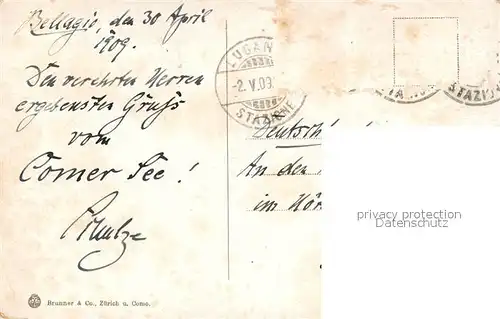 Bellagio, den 30 April
1909.
Den verehrten Herren
ergebensten Gruss
vom
Comer See!
LUGAN
-2.V.09.
STAZIONE
STAZIO
Deutsch
An den
im
privacy protection
Datenschutz
Brunner & Co., Zürich u. Como.